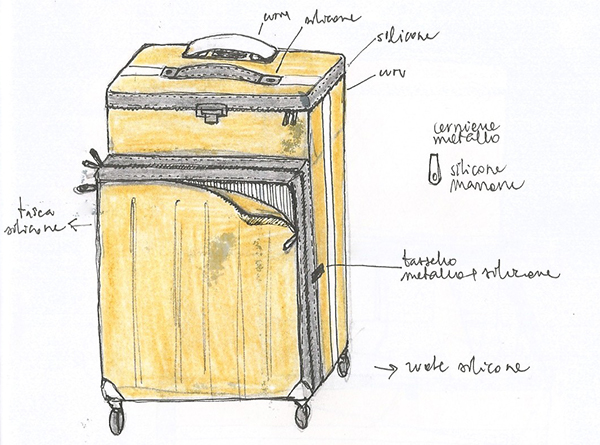 curv
silicone
silicone
curv
cerniere
metallo
silicone
marrone
tasca
silicone
tassello
metallo e silicone
→ ruote silicone